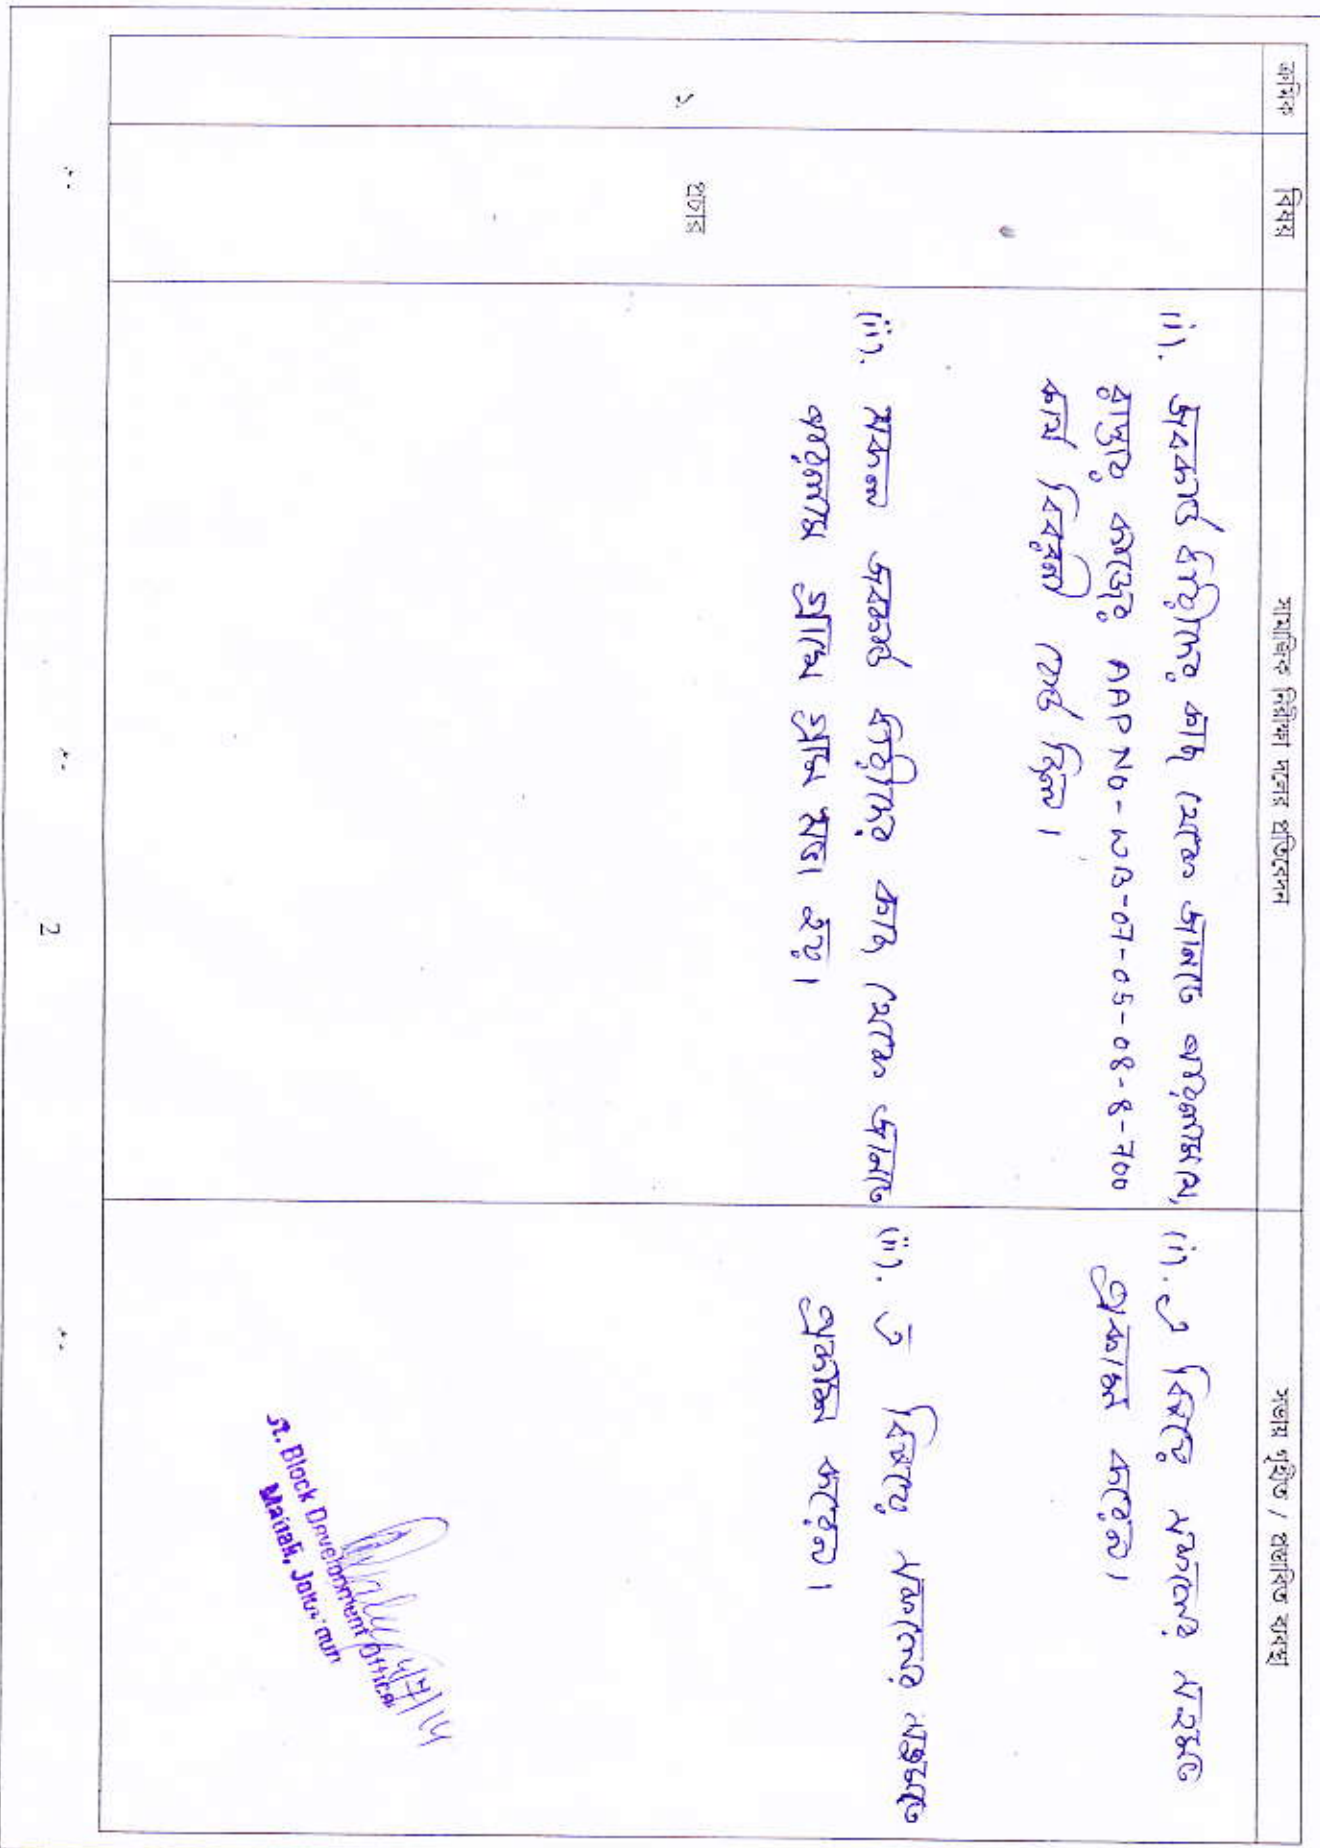 ক্রমিক
বিষয়
সামাজিক নিরীক্ষা দলের প্রতিবেদন
সভায় গৃহীত / প্রস্তাবিত ব্যবস্থা
১
প্রচার
(i). জবকার্ড ধারীদের কাছ থেকে জানতে পারলাম যে,
রাস্তার কাজের AAP NO-WB-07-05-08-8-700
কার্য বিবরনী বোর্ড ছিল।
(ii). সকল জবকার্ড ধারীদের কাছ থেকে জানতে
পারলাম গ্রামে গ্রাম সভা হয়।
(i). এ বিষয়ে সকলের সহমত
প্রকাশ করেন।
(ii). ঐ বিষয়ে সকলের সহমত
প্রকাশ করেন।
4/7/14
Jt. Block Development Officer
Mainak, Jalpaiguri
2